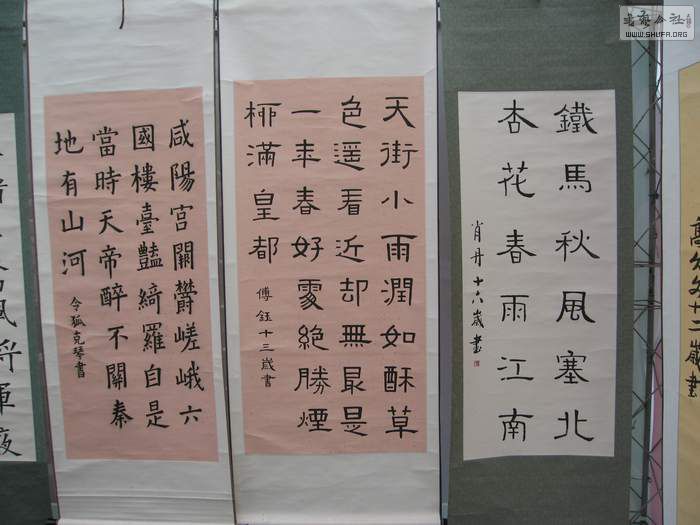 書藝公社
WWW.SHUFA.ORG
十二歲書
鐵馬秋風塞北
杏花春雨江南
肖丹十六歲書
天街小雨潤如酥草
色遥看近却無最是
一年春好處絶勝煙
柳滿皇都
傅鈺十三歲書
咸陽宮闕鬱嵯峨六
國樓臺豔綺羅自是
當時天帝醉不關秦
地有山河
令狐克琴書
風將軍夜